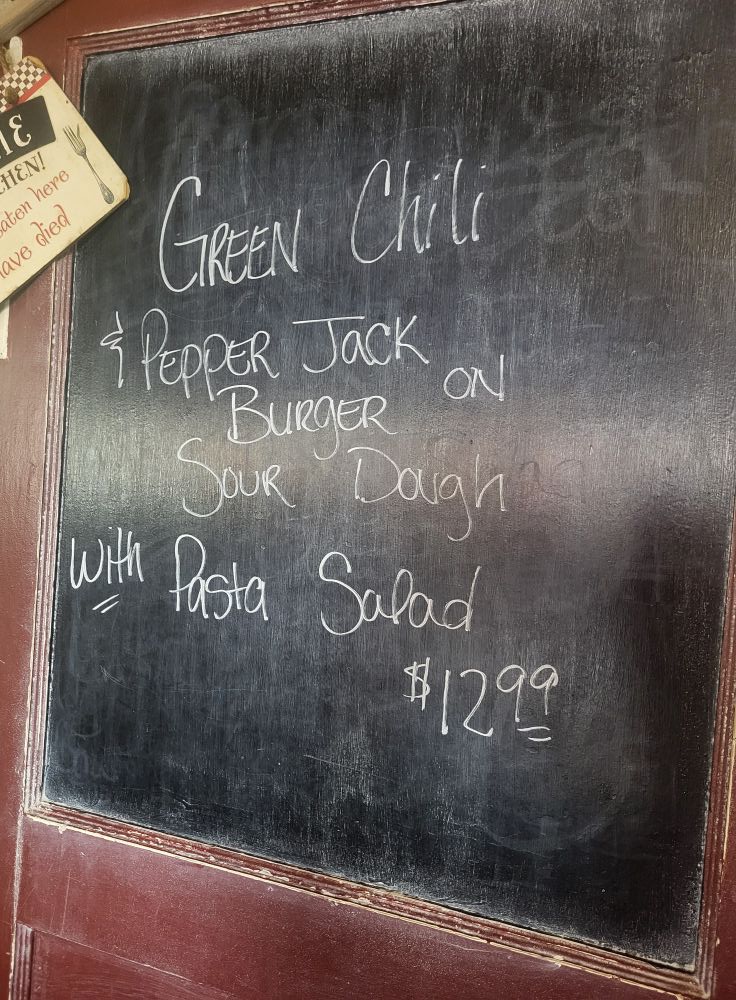 CHEN!
eaten here
have died
GREEN Chili
& PEPPER JACK
BURGER ON
SOUR Dough
With Pasta Salad
$12.99